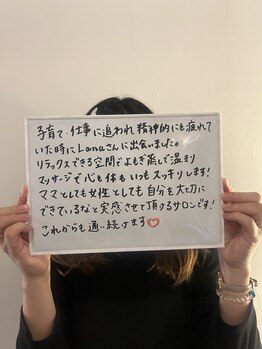 子育て・仕事に追われ精神的にも疲れて
いた時にLanaさんに出会いました。
リラックスできる空間でよもぎ蒸しで温まり
マッサージで心も体もいつもスッキリします！
ママとしても女性としても自分を大切に
できているなと実感させて頂けるサロンです！
これからも通い続けます♡